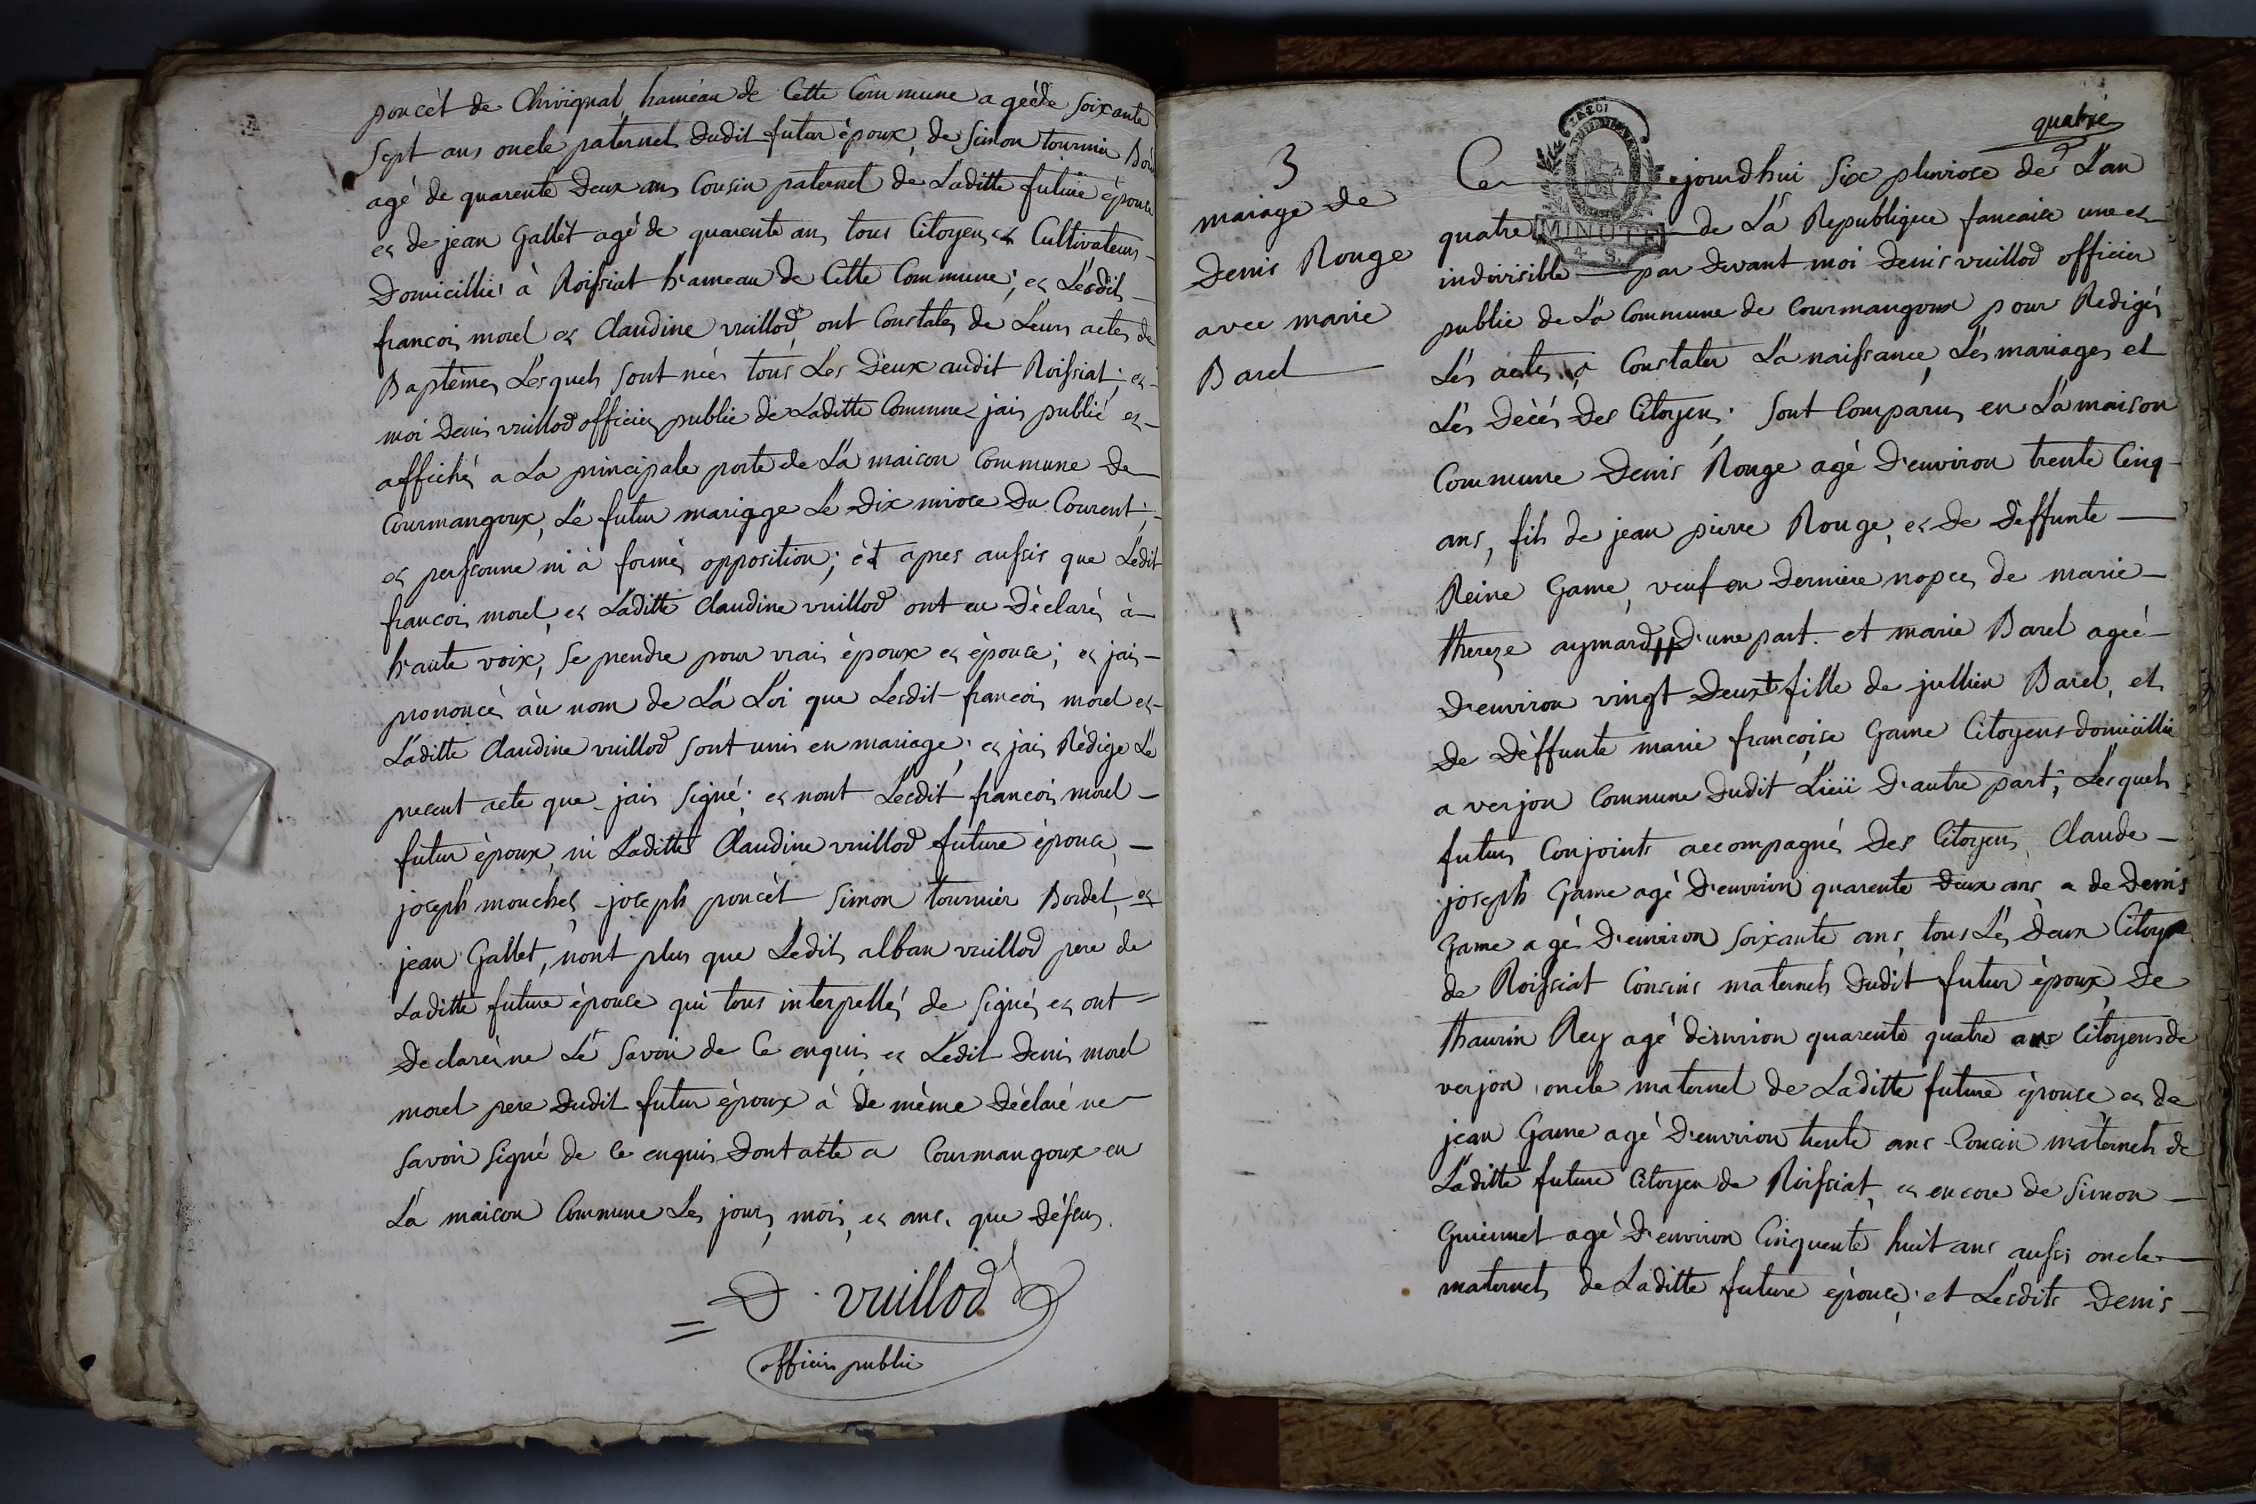 poncèt de Chivignat hameau de Cette Commune a geéde soixante
sept ans oncle paternel dudit futur époux, de Simon tournier Bor
agé de quarente deux ans Cousin paternel de Laditte future épouse
et de jean Gallèt agé de quarente ans, tous Citoyens et Cultivateurs
Domicilliés à Roissiat h'ameau de Cette Commune; et Lesdit
francois morel et Claudine vuillod ont Constatés de Leurs actes de
Baptêmes Lesquels sont néés tous Les Deux audit Roissiat; et
moi denis vuillod officier public de Laditte Commune jais publié et
affiché a La principale porte de La maison Commune de
Courmangoux, Le futur mariage Le Dix nivose Du Courent;
et perssonne ni à formé opposition; èt apres aussis que Ledit
francois morel, et Laditte Claudine vuillod ont eu Déclaré, à
h'aute voix, se prendre pour vrais époux et épouse; et jais
prononcé àu nom de La Loi que Lesdit francois morel et
Laditte Claudine vuillod sont unis en mariage; et jais Rédigé Le
present acte que jais signé; et nont Lesdit francois morel
futur époux, ni Laditte Claudine vuillod future épouse,
joseph mouchet, joseph poncèt Simon tournier Bordet, et
jean Gallet, nont plus que Ledit alban vuillod pere de
Laditte future épouse qui tous interpellés de signés et ont
Declaré ne Le savoir de Ce enquis et Ledit Denis morel
morel pere dudit futur époux à de mème Déclaré ne
savoir signé de ce enquis Dont atte a Courmangoux en
La maison Commune Les jours, mois, et ans, que Dessus.
D. vuillod
officier public
quatre
3
mariage de
Denis Rouge
avec marie
Barel
MINUTE
Ce jourdhui six pluviose de L'an
quatre de La Republique francaise une et
indivisible par devant moi Denis vuillod officier
public de La Commune de Courmangoux pour Redigés
Les actes, a Constater La naissance, Les mariages et
Les Décés Des Citoyens. sont Comparus en La maison
Commune Denis Rouge agé D'environ trente Cinq
ans, fils de jean pierre Rouge, et de Deffunte
Reine Game, veuf en derniere nopces de marie
thereze aymard D'une part. et marie Barel ageé
D'environ vingt Deux fille de jullien Barel, et
de Dèffunte marie francoise Game Citoyens domicillié
a verjon Commune dudit Lieü D'autre part; Lesquels
futurs Conjoints accompagnés Des Citoyens, Claude
joseph Game agé D'environ quarente Deux ans, a de Denis
Game agé D'environ soixante ans, tous Les Deux Citoyen
de Roissiat Cousins maternels dudit futur époux, De
thaurin Rey agé d'environ quarente quatre ans Citoyens de
verjon oncle maternel de Laditte future épouse et de
jean Game agé D'environ trente ans Cousin maternels de
Laditte future Citoyen de Roissiat, et encore de Simon
Guiennet agé D'environ Cinquente huit ans aussi oncle
maternels de Laditte future épouse; et Lesdits Denis